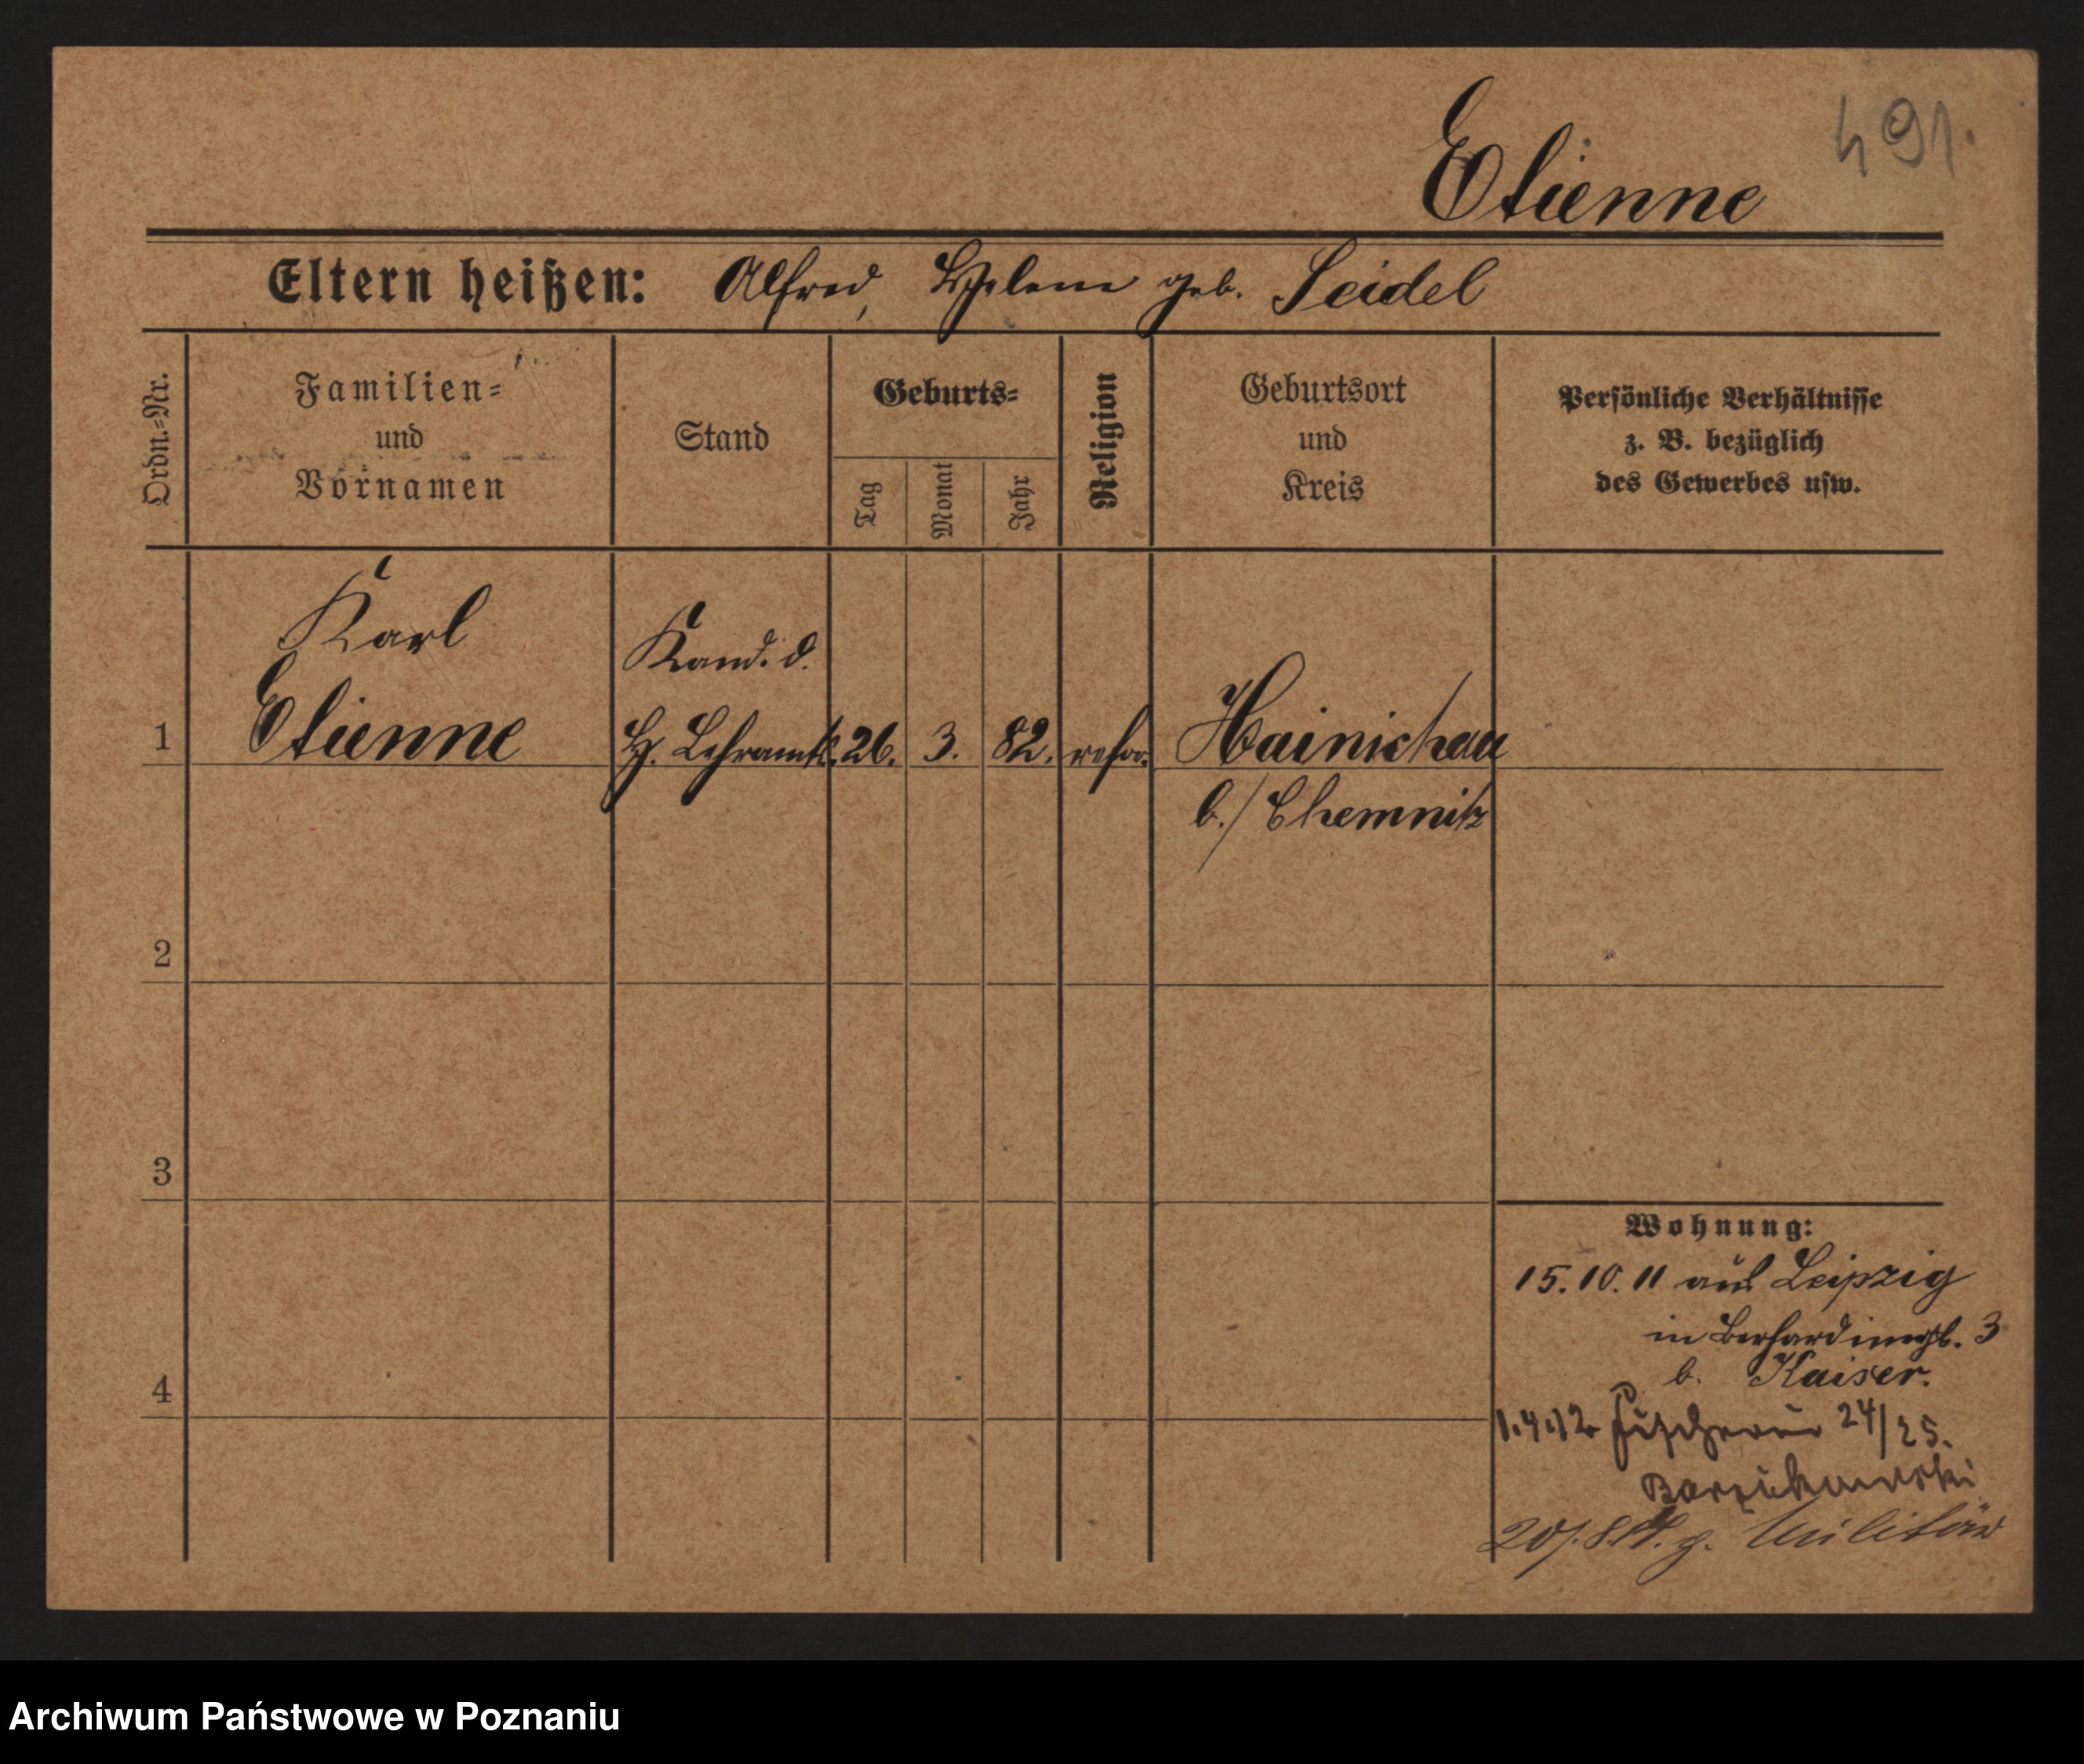 491.
Etienne
Eltern heißen: Alfred, Helene geb. Seidel
Ordn.-Nr.
Familien-
und
Vornamen
Stand
Geburts-
Tag
Monat
Jahr
Religion
Geburtsort
und
Kreis
Persönliche Verhältnisse
z. B. bezüglich
des Gewerbes usw.
Karl
Kand. d.
1 Etienne H. Lehramts. 26. 3. 82. refor. Hainichen
b./ Chemnitz
2
3
Wohnung:
15.10.11 aus Leipzig
in 3
b. Kaiser.
4
1.4.12 Fischerei 24/25.
g. Militär
Archiwum Państwowe w Poznaniu